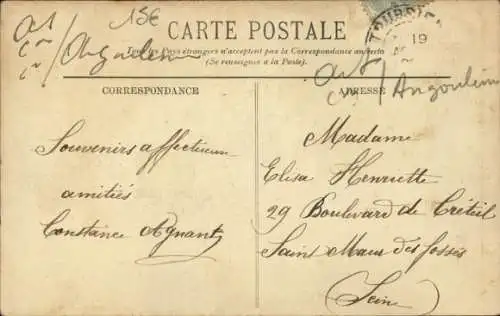 15€
CARTE POSTALE
Tous les Pays étrangers n'acceptent pas la Correspondance au recto
(Se renseigner à la Poste).
CORRESPONDANCE
ADRESSE
Souvenirs affectueux
amitiés
Constance Agnant
Madame
Elisa Henriette
29 Boulevard de Créteil
Saint Maur des fossés
Seine
19